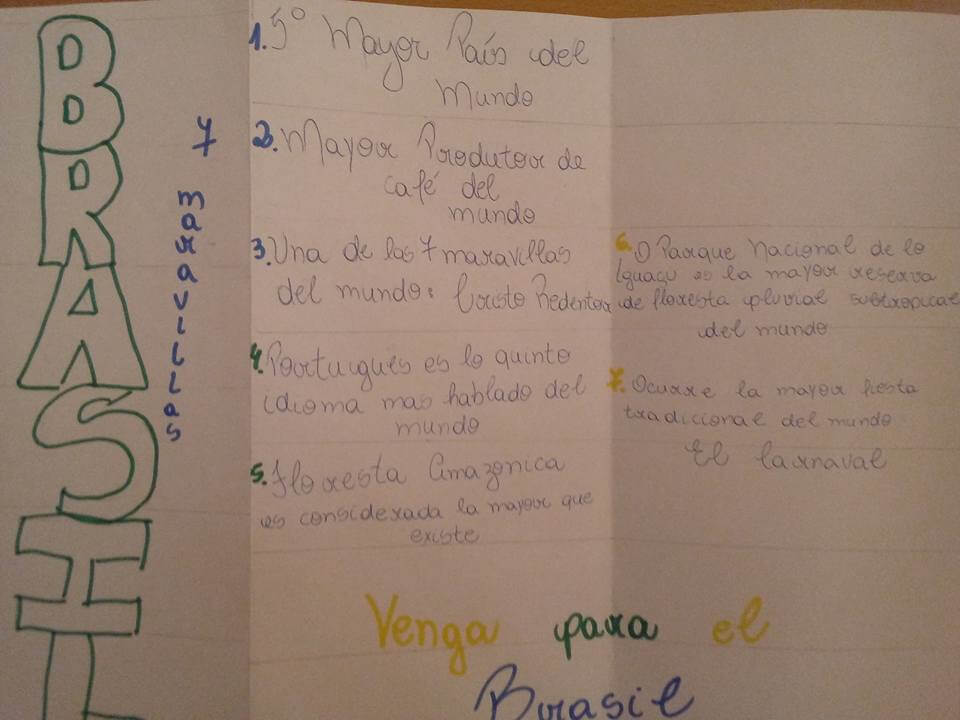 BRASIL
7 maravillas
1. 5º Mayor País del
Mundo
2. Mayor Produtor de
café del
mundo
3. Una de las 7 maravillas
del mundo: Cristo Redentor
4. Portugues es lo quinto
idioma mas hablado del
mundo
5. Floresta Amazonica
es considerada la mayor que
existe
6. O Parque Nacional de lo
Iguaçu es la mayor reserva
de floresta pluvial subtropical
del mundo
7. Ocurre la mayor fiesta
tradicional del mundo
El Carnaval
Venga para el
Brasil